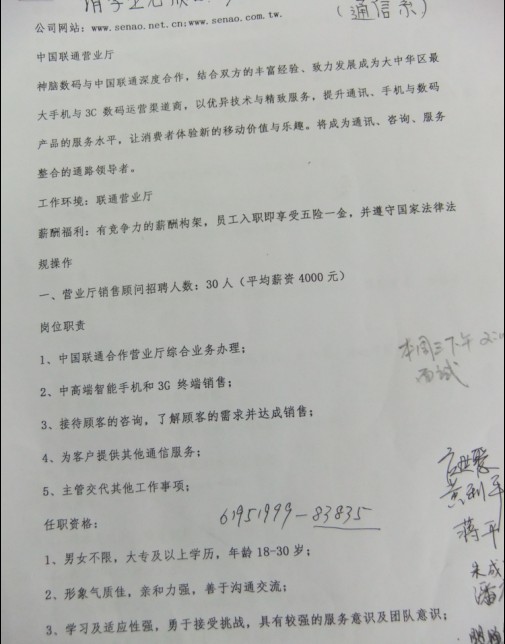 (通信系)
公司网站：www.senao.net.cn;www.senao.com.tw.
中国联通营业厅
神脑数码与中国联通深度合作，结合双方的丰富经验、致力发展成为大中华区最
大手机与 3C 数码运营渠道商，以优异技术与精致服务，提升通讯、手机与数码
产品的服务水平，让消费者体验新的移动价值与乐趣。将成为通讯、咨询、服务
整合的通路领导者。
工作环境：联通营业厅
薪酬福利：有竞争力的薪酬构架，员工入职即享受五险一金，并遵守国家法律法
规操作
一、营业厅销售顾问招聘人数：30 人（平均薪资 4000 元）
岗位职责
1、中国联通合作营业厅综合业务办理；
本周三下午 2:
面试
2、中高端智能手机和 3G 终端销售；
3、接待顾客的咨询，了解顾客的需求并达成销售；
4、为客户提供其他通信服务；
5、主管交代其他工作事项；
61951999-83835
任职资格：
蒋平
1、男女不限，大专及以上学历，年龄 18-30 岁；
朱成
2、形象气质佳，亲和力强，善于沟通交流；
3、学习及适应性强，勇于接受挑战，具有较强的服务意识及团队意识；